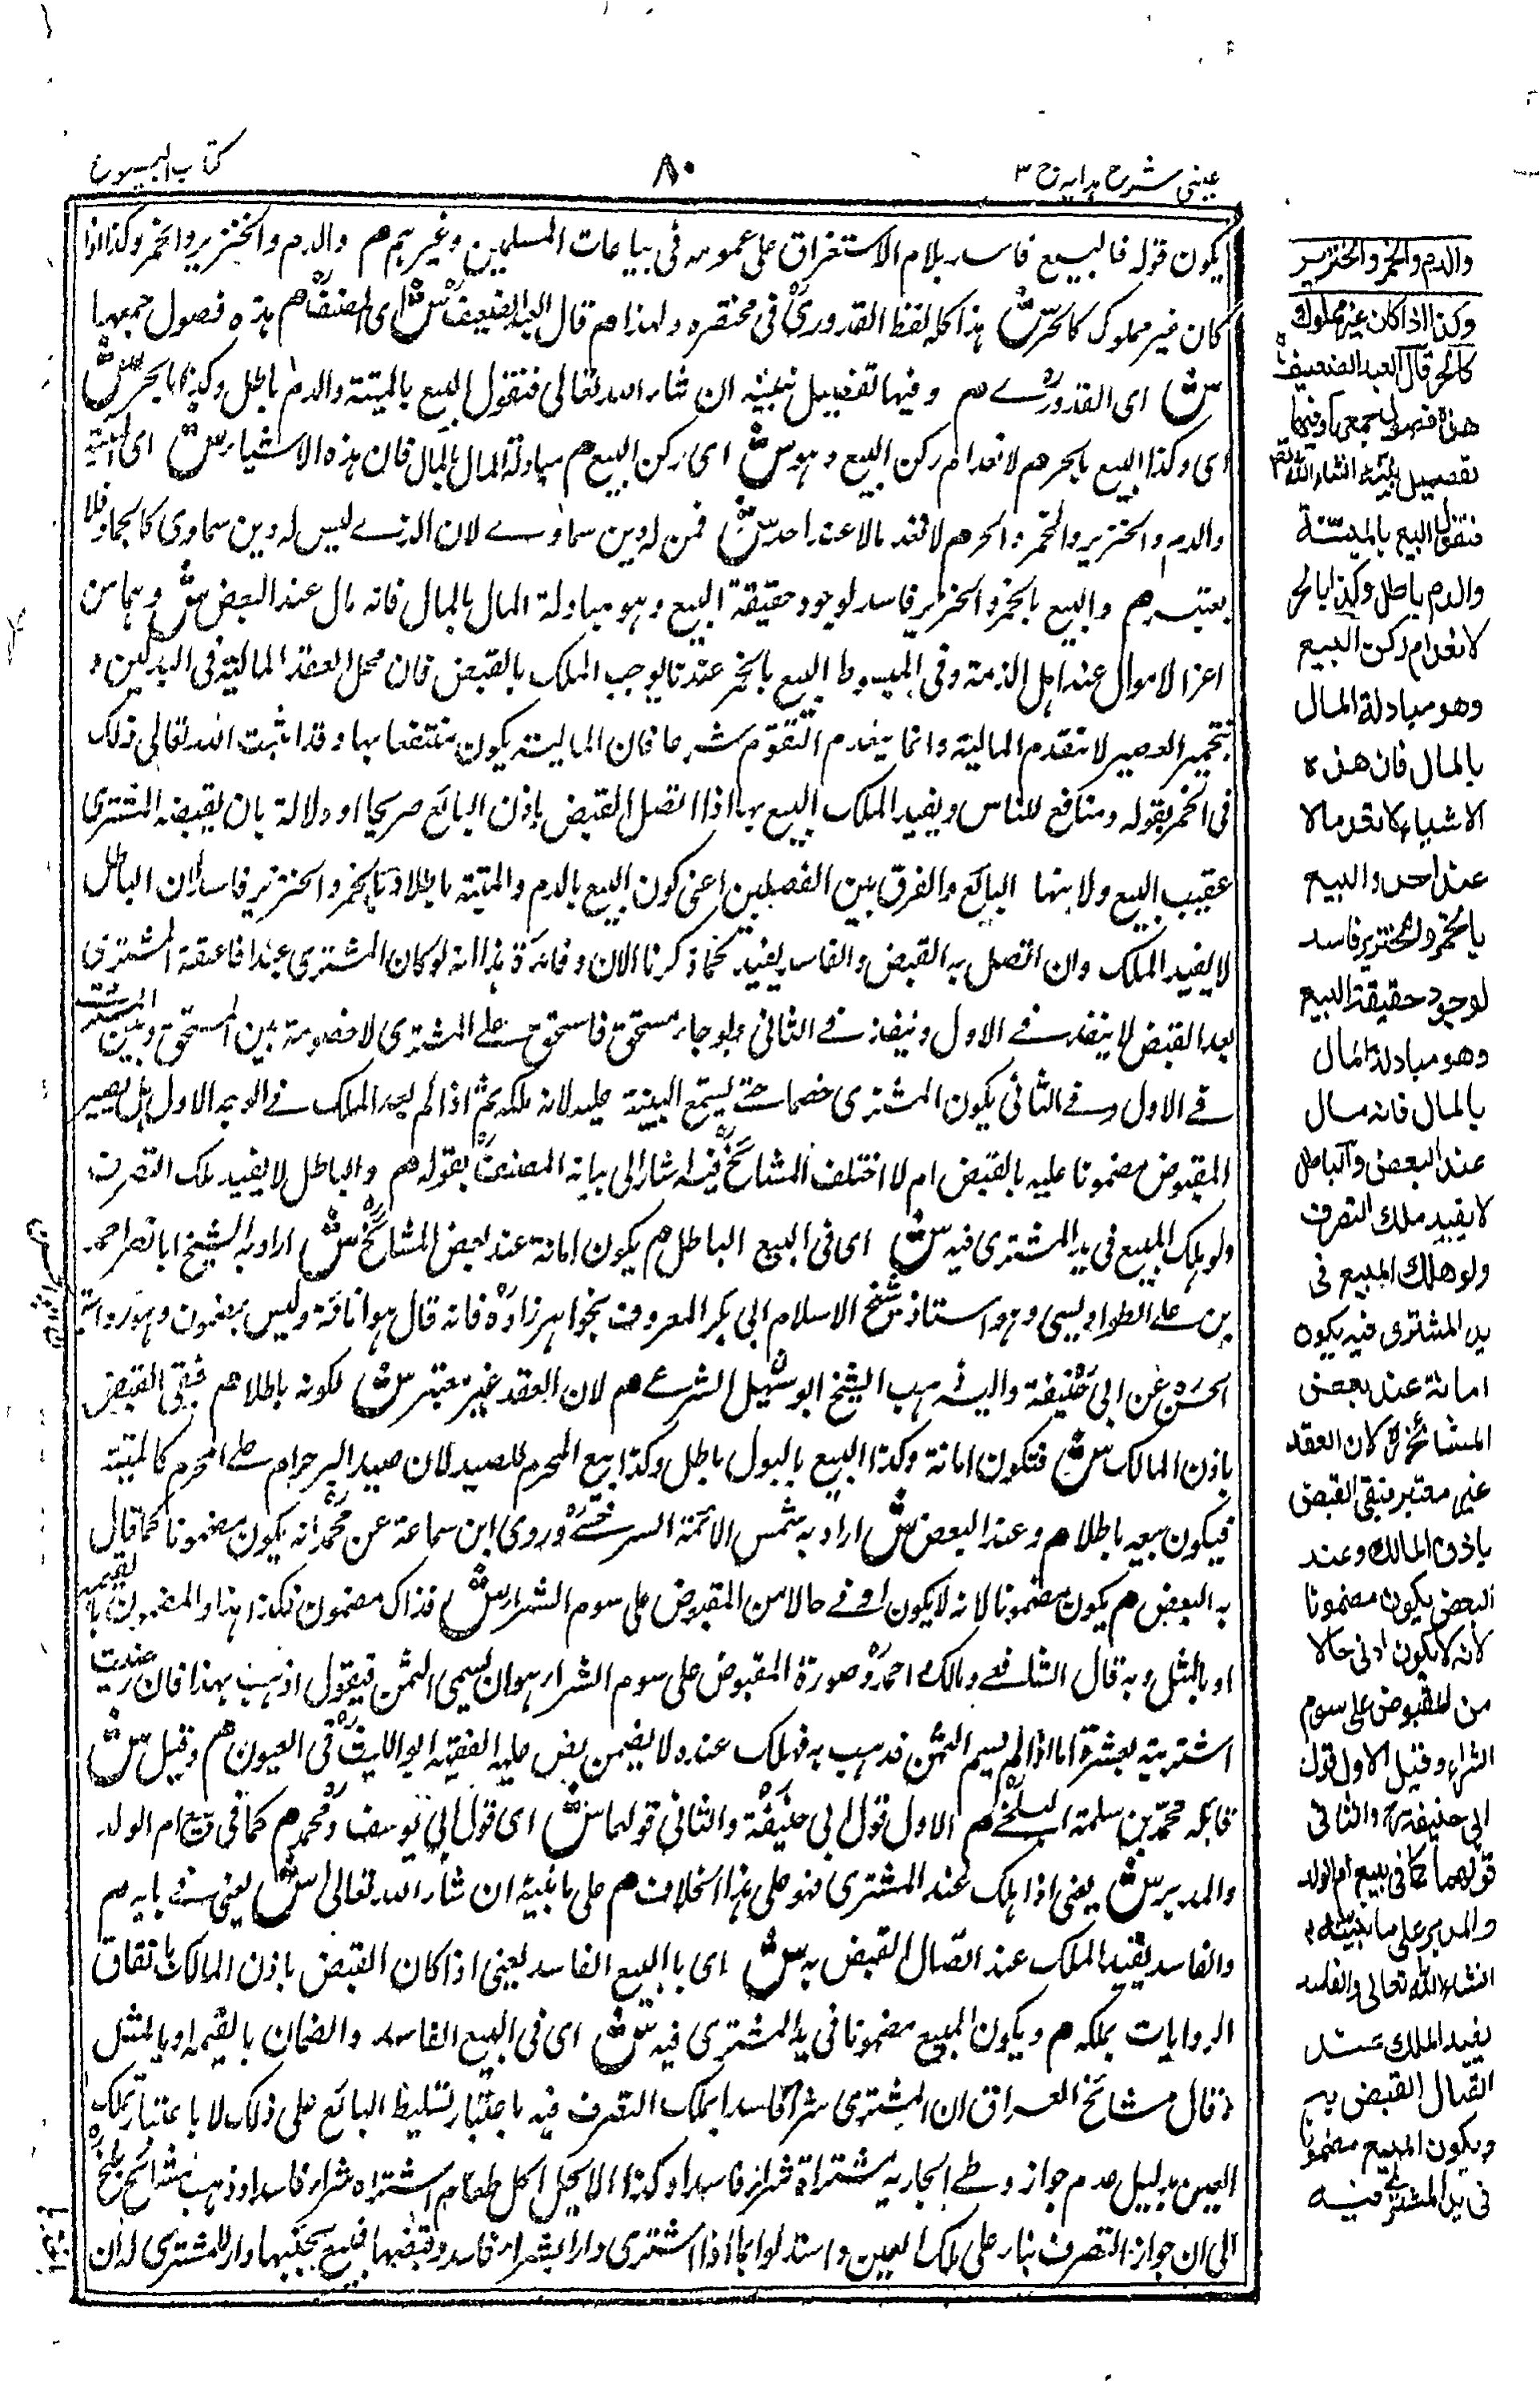 عینی شرح ہدایہ ج ۳
۸۰
کتاب البیوع
یکون قوله فالبیع فاسد بلام الاستغراق علی عمومه فی بیاعات المسلمین وغیرہم هم والدم والخنزیر والخمر وکذا اذا
کان غیر مملوک کالحر ش هذا کله لفظ القدوری فی مختصرہ ولہذا هم قال العبد الضعیف ش ای المصنف هم هذه فصول جمعها
ش ای القدوری هم وفیها تفصیل نبینه ان شاء الله تعالی فنقول البیع بالمیتة والدم باطل وکذا بالحر ش
ای وکذا البیع بالحر هم لانعدام رکن البیع وهو ش ای رکن البیع هم مبادلة المال بالمال فان هذه الاشیاء ش ای المیتة
والدم والخنزیر والخمر والحر هم لا تعد مالا عند احد ش فمن له دین سماوی لان الذی لیس له دین سماوی کالجماد فلا
یعتبر هم والبیع بالخمر والخنزیر فاسد لوجود حقیقة البیع وهو مبادلة المال بالمال فانه مال عند البعض ش وهما من
اعز الاموال عند اهل الذمة وفی المبسوط البیع بالخمر عندنا یوجب الملک بالقبض فان محل العقد المالیة فی البدلین و
بتخمیر العصیر لا تنعدم المالیة وانما ینعدم التقوم شرعا فان المالیة یکون منتفعا بها وقد اثبت الله تعالی ذلک
فی الخمر بقوله ومنافع للناس ویفید الملک البیع بها اذا اتصل القبض باذن البائع صریحا او دلالة بان یقبضه المشتری
عقیب البیع ولا ینها البائع والفرق بین الفصلین اعنی کون البیع بالدم والمیتة باطلا وبالخمر والخنزیر فاسدا ان الباطل
لا یفید الملک وان اتصل به القبض والفاسد یفید کما ذکرنا الان وفائدة هذا انه لو کان المشتری عبدا فاعتقه المشتری
بعد القبض لا ینفذ فی الاول وینفذ فی الثانی ولو جاء مستحق فاستحق علی المشتری لا خصومة بین المستحق وبین المشتری
فی الاول وفی الثانی یکون المشتری خصما حتی یستمع البینة علیه لانه ملکه ثم اذا لم یعد الملک فی الوجه الاول هل یصیر
المقبوض مضمونا علیه بالقبض ام لا اختلف المشائخ فیه اشار الی بیانه المصنف بقوله هم والباطل لا یفید ملک التصرف
ولو هلک المبیع فی ید المشتری فیه ش ای فی البیع الباطل هم یکون امانة عند بعض المشائخ ش اراد به الشیخ ابا نصر احمد
بن علی الطواویسی وهو استاذ شیخ الاسلام ابی بکر المعروف بخواهر زاده فانه قال هو امانة ولیس بمضمون وهو روایة
الحسن عن ابی حنیفة والیه ذهب الشیخ ابو سهیل الشرعی هم لان العقد غیر معتبر ش لکونه باطلا هم فبقی القبض
باذن المالک ش فتکون امانة وکذا البیع بالبول باطل وکذا بیع المحرم للصید لان صید البر حرام علی المحرم کالمیتة
فیکون بیعه باطلا هم وعند البعض ش اراد به شمس الائمة السرخسی وروی ابن سماعة عن محمد انه یکون مضمونا کما قال
به البعض هم یکون مضمونا لانه لا یکون ادنی حالا من المقبوض علی سوم الشراء ش فذاک مضمون فکذا هذا والمضمون بالقیمة
او بالمثل وبه قال الشافعی ومالک واحمد وصورة المقبوض علی سوم الشراء هو ان یسمی الثمن فیقول اذهب بهذا فان رضیت
اشتریته بعشرة اما اذا لم یسم الثمن فذهب به فهلک عنده لا یضمن نص علیه الفقیه ابو اللیث فی العیون هم وقیل ش
قائله محمد بن سلمة البلخی هم الاول قول ابی حنیفة والثانی قولهما ش ای قول ابی یوسف ومحمد هم کما فی بیع ام الولد
والمدبر ش یعنی اذا هلک عند المشتری فهو علی هذا الخلاف هم علی ما نبینه ان شاء الله تعالی ش یعنی فی بابه هم
والفاسد یفید الملک عند اتصال القبض به ش ای بالبیع الفاسد یعنی اذا کان القبض باذن المالک باتفاق
الروایات یملکه هم ویکون المبیع مضمونا فی ید المشتری فیه ش ای فی البیع الفاسد والضمان بالقیمة او بالمثل
وقال مشائخ العراق ان المشتری شراء فاسدا یملک التصرف فیه باعتبار تسلیط البائع علی ذلک لا باعتبار تملک
العین بدلیل عدم جواز وطی الجاریة مشتراة شراء فاسدا وکذا لا یحل اکل طعام اشتراه شراء فاسدا وذهب مشائخ بلخ
الی ان جواز التصرف بناء علی ملک العین واستدلوا بما اذا اشتری دارا بشراء فاسد وقبضها فبیع بجنبها دار للمشتری ان
والدم والخمر والخنزیر
وکذا اذا کان غیر مملوک
کالحر قال العبد الضعیف
هذه فصول جمعها وفیها
تفصیل نبینه انشاء الله تع
فنقول البیع بالمیتة
والدم باطل وکذا بالحر
لانعدام رکن البیع
وهو مبادلة المال
بالمال فان هذه
الاشیاء لا تعد مالا
عند احد والبیع
بالخمر والخنزیر فاسد
لوجود حقیقة البیع
وهو مبادلة المال
بالمال فانه مال
عند البعض والباطل
لا یفید ملک التصرف
ولو هلک المبیع فی
ید المشتری فیه یکون
امانة عند بعض
المشائخ لان العقد
غیر معتبر فبقی القبض
باذن المالک وعند
البعض یکون مضمونا
لانه لا یکون ادنی حالا
من المقبوض علی سوم
الشراء وقیل الاول قول
ابی حنیفة والثانی
قولهما کما فی بیع ام الولد
والمدبر علی ما نبینه
انشاء الله تعالی والفاسد
یفید الملک عند
اتصال القبض به
ویکون المبیع مضمونا
فی ید المشتری فیه